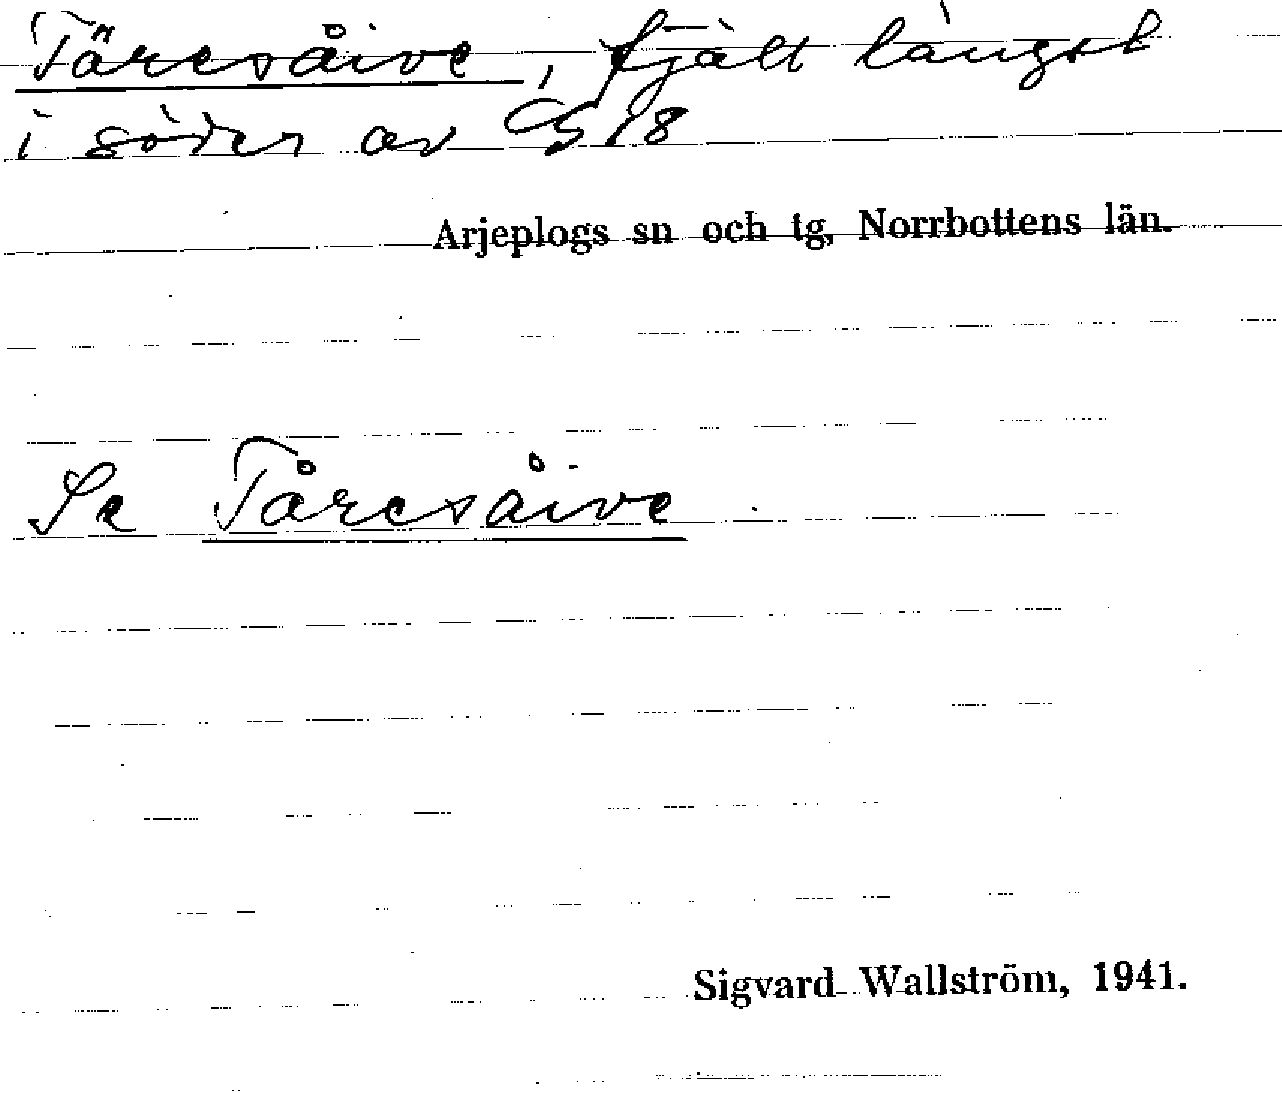 Täresåive, fjäll längst
i söder av G 18
Arjeplogs sn och tg, Norrbottens län.
Se Tåresåive
Sigvard Wallström, 1941.